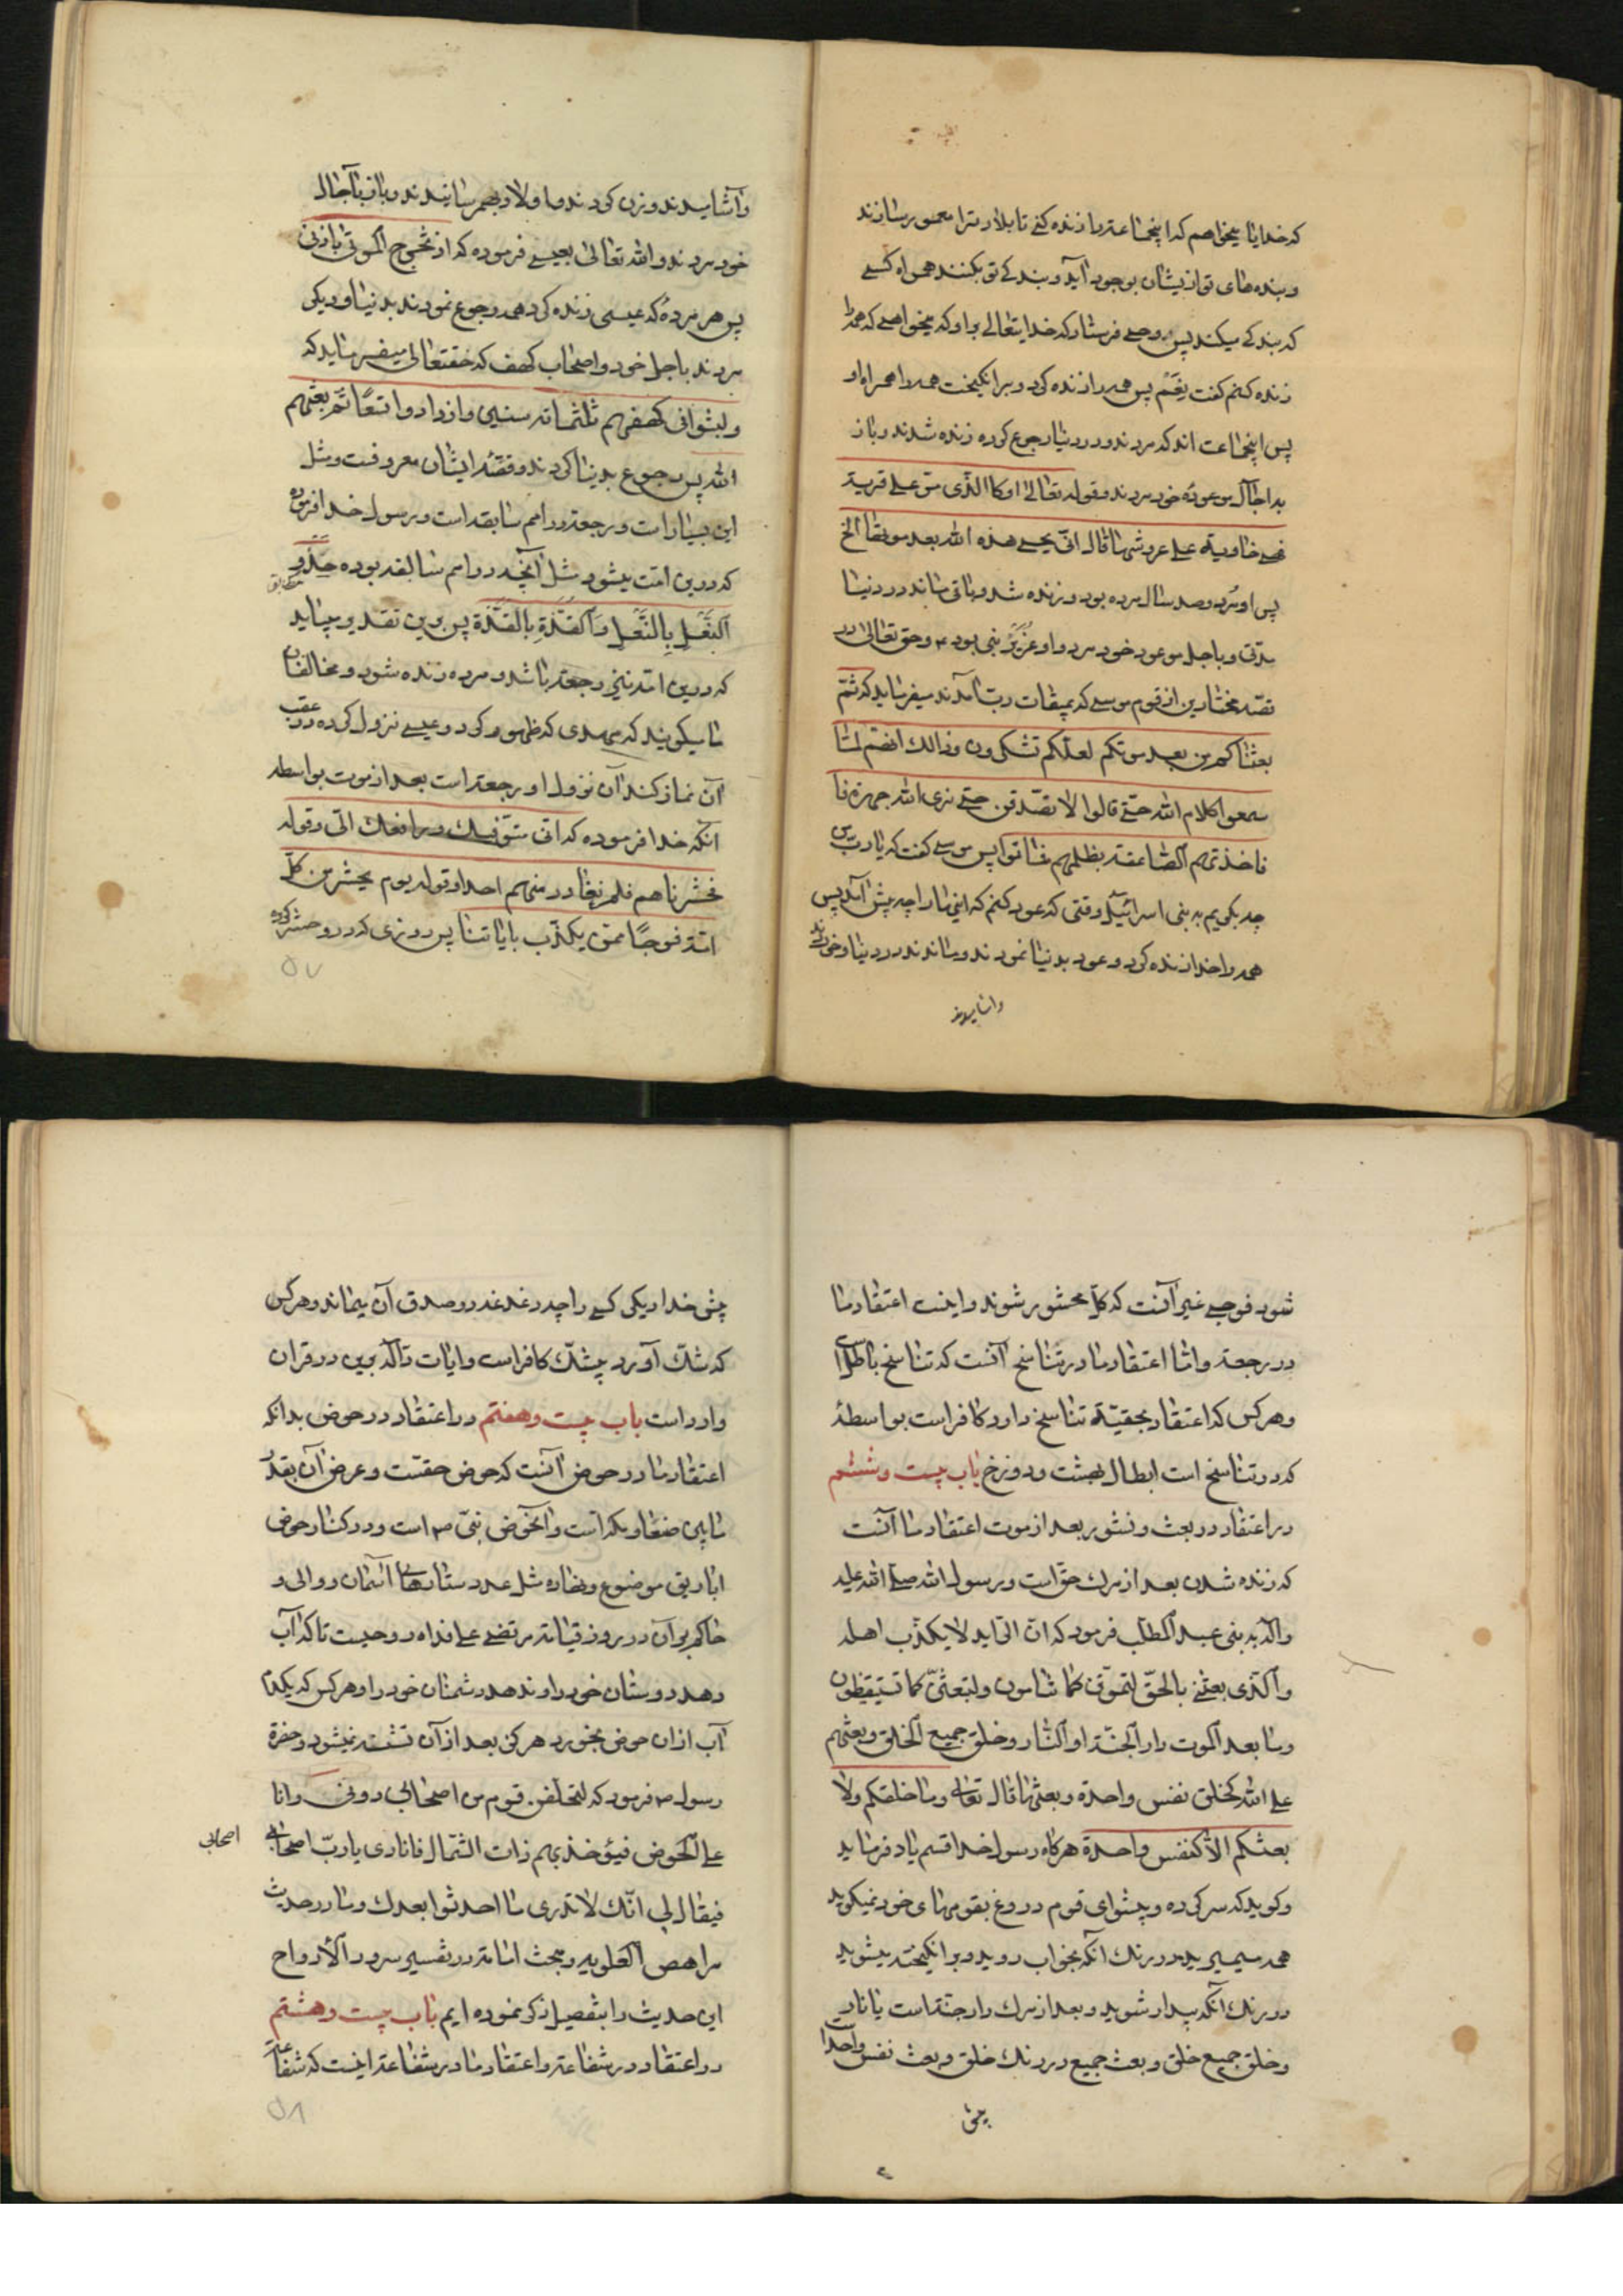 که خدایا میخواهم که اینجماعترا زنده کنے تا بلاد ترا معمور سازند
و بنده های تو ازیشان بوجود آید و بندکے تو بکنند همراه کسے
که بندکے میکند پس وحے فرستاد که خدایتعالے براو که میخواهے که همه را
زنده کنم کفت نعم پس همه را زنده کرد و برانکیخت همه را همراه او
پس اینجماعت اند که مردند و در دنیا رجوع کرده زنده شدند و باز
بداجال موعوده خود مردند و قوله تعالے او کاالذی مرّ علے قریة
فهے خاویة علے عروشها قال انّے یحیے هذه الله بعد موتها الخ
پس او مرد و صد سال مرده بود و زنده شد و باقی ماند در دنیا
مدّتی و باجل موعود خود مرد و او عُزَیرُ نبی بود ع و حق تعالے در
قصّه مختارین از قوم موسے که بمیقات ربّ آمدند میفرماید که ثمّ
بعثناکم من بعد موتکم لعلّکم تشکرون وذالك انهم لمّا
سمعوا کلام الله حتّے قالوا لا نصّدّق حتے نری الله جهرة فا
فاخذتهم الصّاعقة بظلمهم فماتوا پس موسے کفت که یا ربّ پس
چه بکویم به بنی اسرائیل وقتی که عود کنم که اینها را چه پیش آمد پس
همه را خدا زنده کرد و عود بدنیا نمودند و ماندند در دنیا و خوردند
واشامیدند
وآشامیدند و زن کردند و اولاد بهمرسانیدند و باز بآجال
خود مردند والله تعالیٰ بعیسے فرموده که اذ تخرج الموتی باذنی
پس هر مرده که عیسی زنده کرد همه رجوع نمودند بدنیا و دیکر
مردند باجل خود و اصحاب کهف که حقتعالےٰ میفرماید که
ولبثوا فی کهفهم ثلثمائة سنین وازدادوا تسعًا ثمّ بعثهم
الله پس رجوع بدنیا کردند و قصّهٔ ایشان معروفست و مثل
این بسیار است و رجعة در امم سابقه است و رسول خدا فرموده
که درین امّت میشود مثل آنچه در امم سابقه بوده حذو
النّعل بالنّعل والقذّة بالقذّة پس برین تقدیر میباید
که درین امّة نیز رجعة باشد و مرده زنده شود و مخالفان
ما میکویند که مهدی که ظهور کرد و عیسے نزول کرده در عقب
آن نماز کند آن نزول او رجعة است بعد از موت بواسطه
آنکه خدا فرموده که انی متوّفیك ورافعك الیّ وقوله
فحشرناهم فلم نغادر منهم احدا وقوله یوم یحشر من کلّ
امّة فوجًا ممّن یکذّب بایاتنا پس روزی که در و حشر کرده
٥٧
شود فوجے غیر آنست که کلّ محشور شوند و اینست اعتقاد ما
در رجعة و امّا اعتقاد ما در تناسخ آنست که تناسخ باطل است
و هرکس که اعتقاد بحقیّة تناسخ دارد کافر است بواسطهٔ
که در تناسخ است ابطال بهشت و دوزخ باب بیست و ششم
در اعتقاد در بعث و نشور بعد از موت اعتقاد ما آنست
که زنده شدن بعد از مرك حق است و رسول الله صلّے الله علیه
وآله به بنی عبد المطلّب فرمود که انّ الرّاید لا یکذّب اهله
والّذی بعثنے بالحقّ لتموّتن کما تنامون ولتبعثنّ کما تستیقظون
وما بعد الموت دار الجنّة او النّار وخلق جمیع الخلق وبعثهم
علے الله کخلق نفس واحدة وبعثها قال تعالے وما خلقکم ولا
بعثکم الّا کنفس واحدة هرکاه رسول خدا قسم یاد فرماید
و کوید که سرکرده و پیشوای قوم دروغ بقومهای خود نمیکوید
همه میمیرید در رنك آنکه بخواب روید و برانکیخته میشوید
در رنك آنکه بیدار شوید و بعد از مرك دار جنّة است یا نار
و خلق جمیع خلق و بعث جمیع در رنك خلق و بعث نفس واحدا است
پیش
پیش خدا دیکر کسے را چه دغدغه در صدق آن بماند و هرکس
که شكّ آورد بیشكّ کافر است و ایات دآلّه برین در قران
وارد است باب بیست و هفتم در اعتقاد در حوض بدانکه
اعتقاد ما در حوض آنست که حوض حقّست و عرض آن بقدر
مابین صنعا و مکه است و آنحوض نبیّ ص است و در کنار حوض
اباریق موضوع و نهاده مثل عدد ستارهای آسمان و والی و
حاکم بر آن در روز قیامة مرتضے علے فداه روحیست تا که آب
دهد دوستان خود را و ندهد دشمنان خود را و هرکس که یکدم
آب ازان حوض بخورد هرکز بعد از آن تشنه نمیشود و حضرة
رسول ص فرمود که لیتخلّفن قوم من اصحابی دونی وانا
علے الحوض فیؤخذ بهم ذات الشّمال فانادی یا ربّ اصحابے
اصحابی
فیقال لی انّك لا تدری ما احدثوا بعدك و ما در حدیث
مراهص العلویه و مبحث امامة در تفسیر سرور الأرواح
این حدیث را بتفصیل ذکر نموده ایم باب بیست و هشتم
در اعتقاد در شفاعة و اعتقاد ما در شفاعة اینست که شفاعة
٥٨